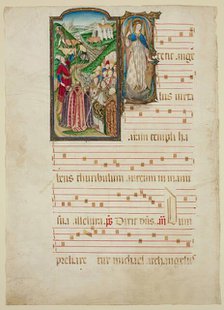 tetit ange
lus iuxta
aram templi ha
bens thuribulum aureum in manu
sua alleluia. ps Dixit dns. Dum
preliare tur michael archangelus